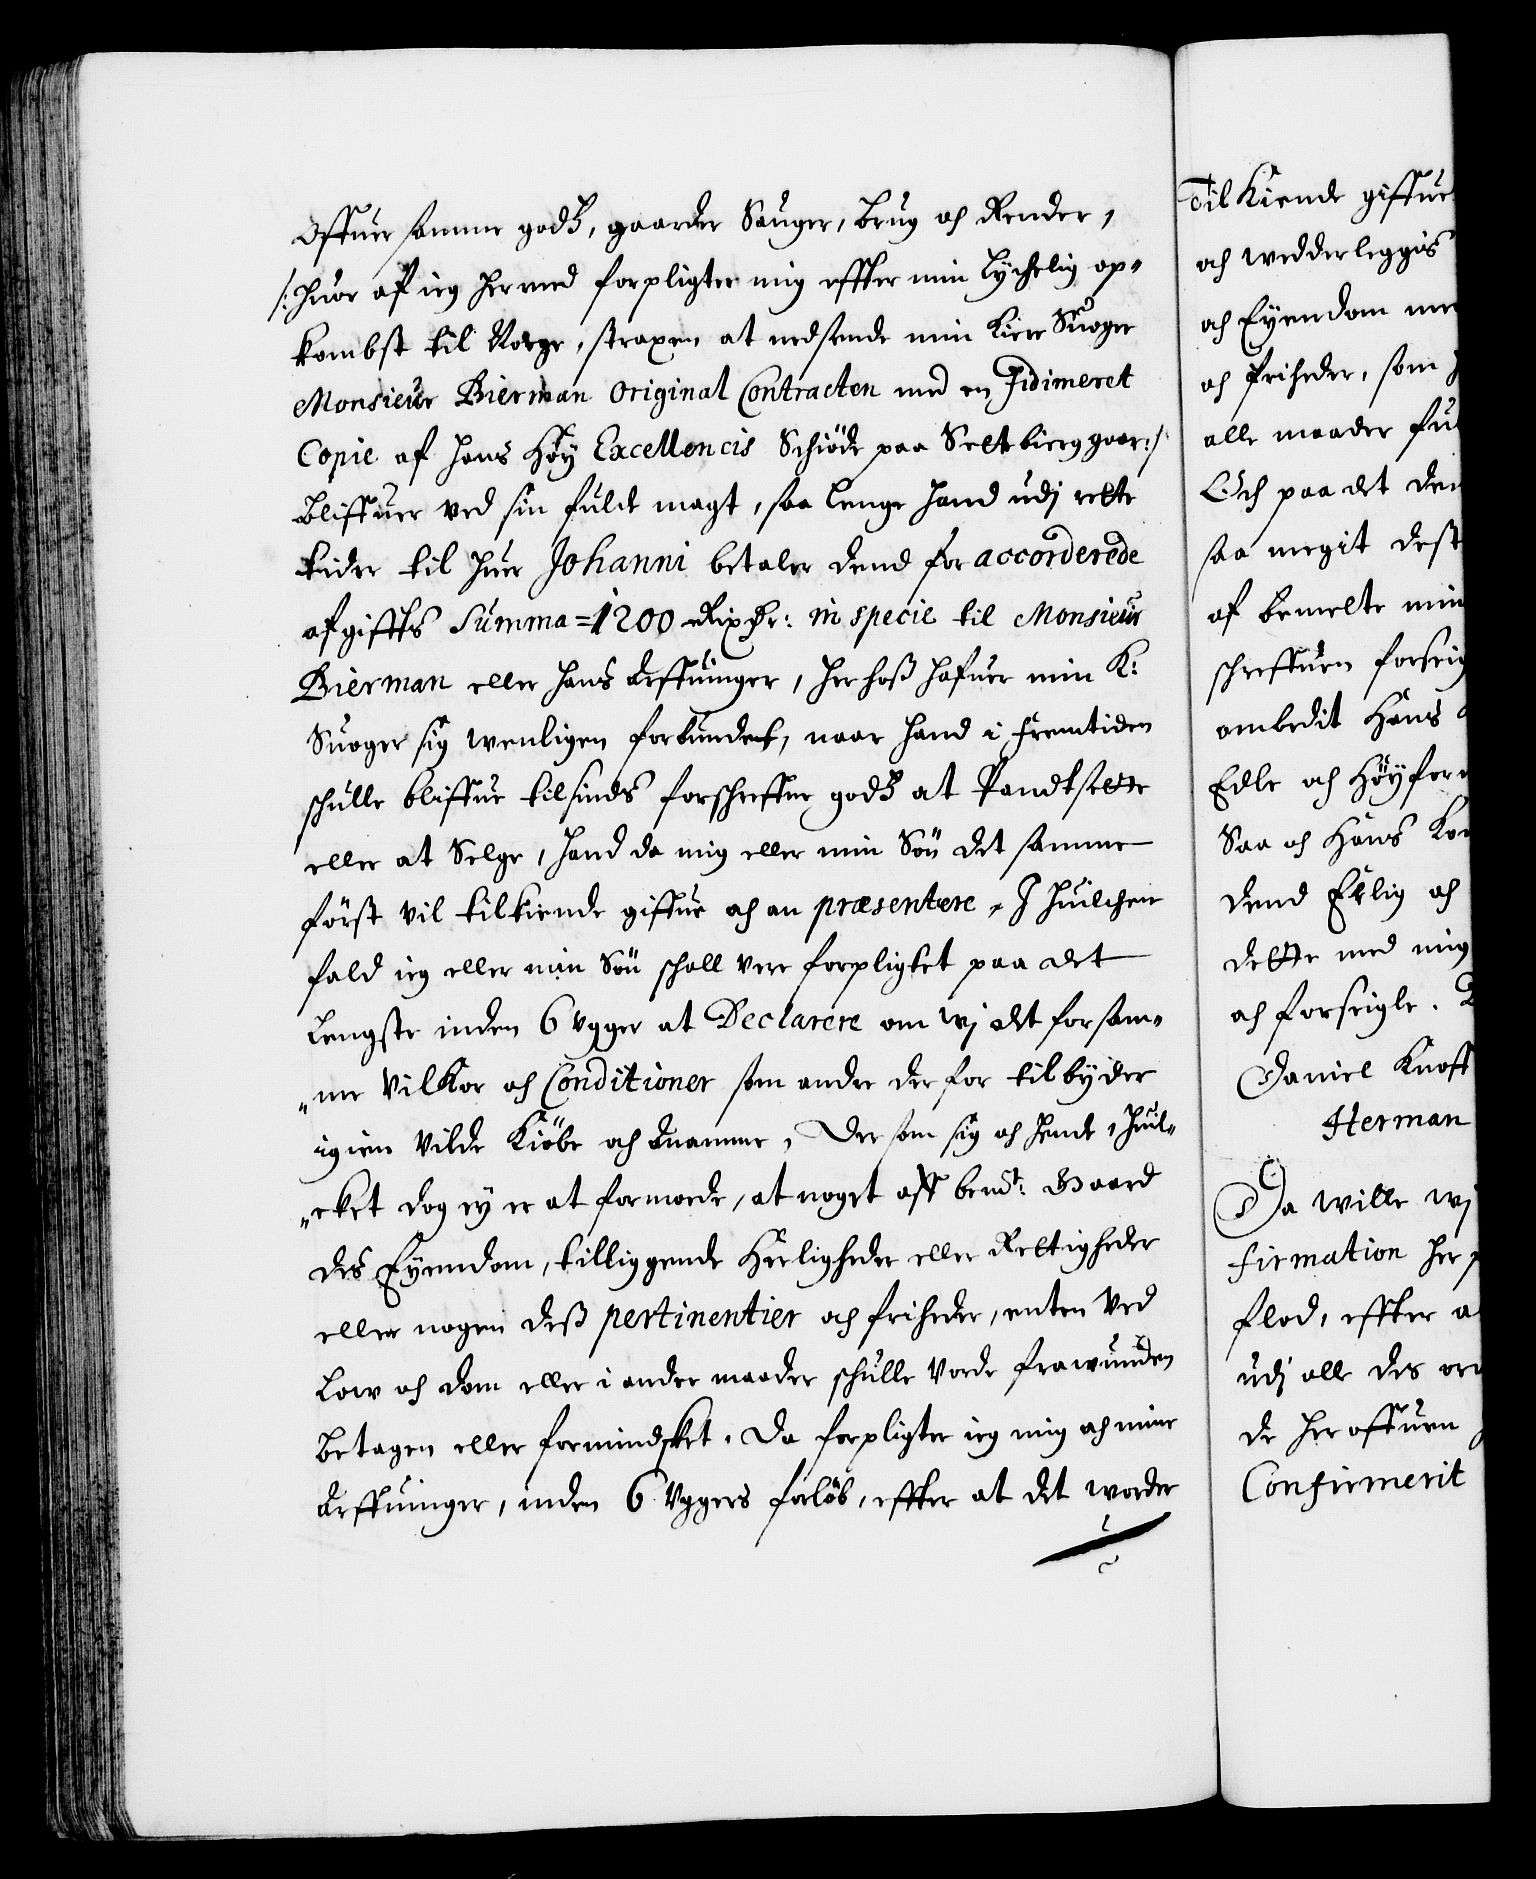 Offuer samme godtz, gaarder Sauger, brug och Render,
/: huor af ieg hermed forpligter mig effter min lychelig op-
kombst til Norge, straxen at nedsende min kiere Suoger
Monsieur Bierman Original Contracten med en Fidimeret
Copie af hans Höy Excellencis Schiöde paa Seltebierg gaar:/
bliffuer ved sin fulde magt, saa lenge hand udj rette
tider til huer Johanni betaler dend for accorderede
afgiffts Summa = 1200 Rixdr: in specie til Monsieur
Bierman eller hans Arffuinger, her hoß hafuer min K:
Suoger sig wenligen forbundent, naar hand i fremtiden
schulle bliffue tilsinds forschreffne godtz at Pandtsette
eller at Selge, hand da mig eller min Sön det samme
först vil tilkiende giffue och an præsentere, I huilchen
fald ieg eller min Sön schall vere forpligtet paa det
Lengste inden 6 Ugger at Declarere om wj det for sam-
"me Vilkor och Conditioner som andre der for tilbyder
igien Vilde Kiöbe och Annamme, Der som sig och hende, huil-
"cket dog ey er at formode, at noget aff bemte: Gaard
des Eyendom, tilliggende Herligheder eller Rettigheder
eller nogen deß pertinentier och friheder, enten Ved
Low och dom eller i andre maader schulle Vorde frawunden
betagen eller formindsket. Da forpligter ieg mig och mine
Arffuinger, inden 6 Uggers forlöb, effter at det worder
Til Kiende giffue
och wedderleggis
och Eyendom
och friheder, som
alle maader
Och paa det
saa megit
af bemelte min
schreffuen
ombedit Hans
Edle och
Saa och Hans
dend Erlig och
dette med mig
och forseigle.
Daniel Knoff
Herman
Da wille wj
firmation her
flod, effter
udj alle des
de her offuen
Confirmerit